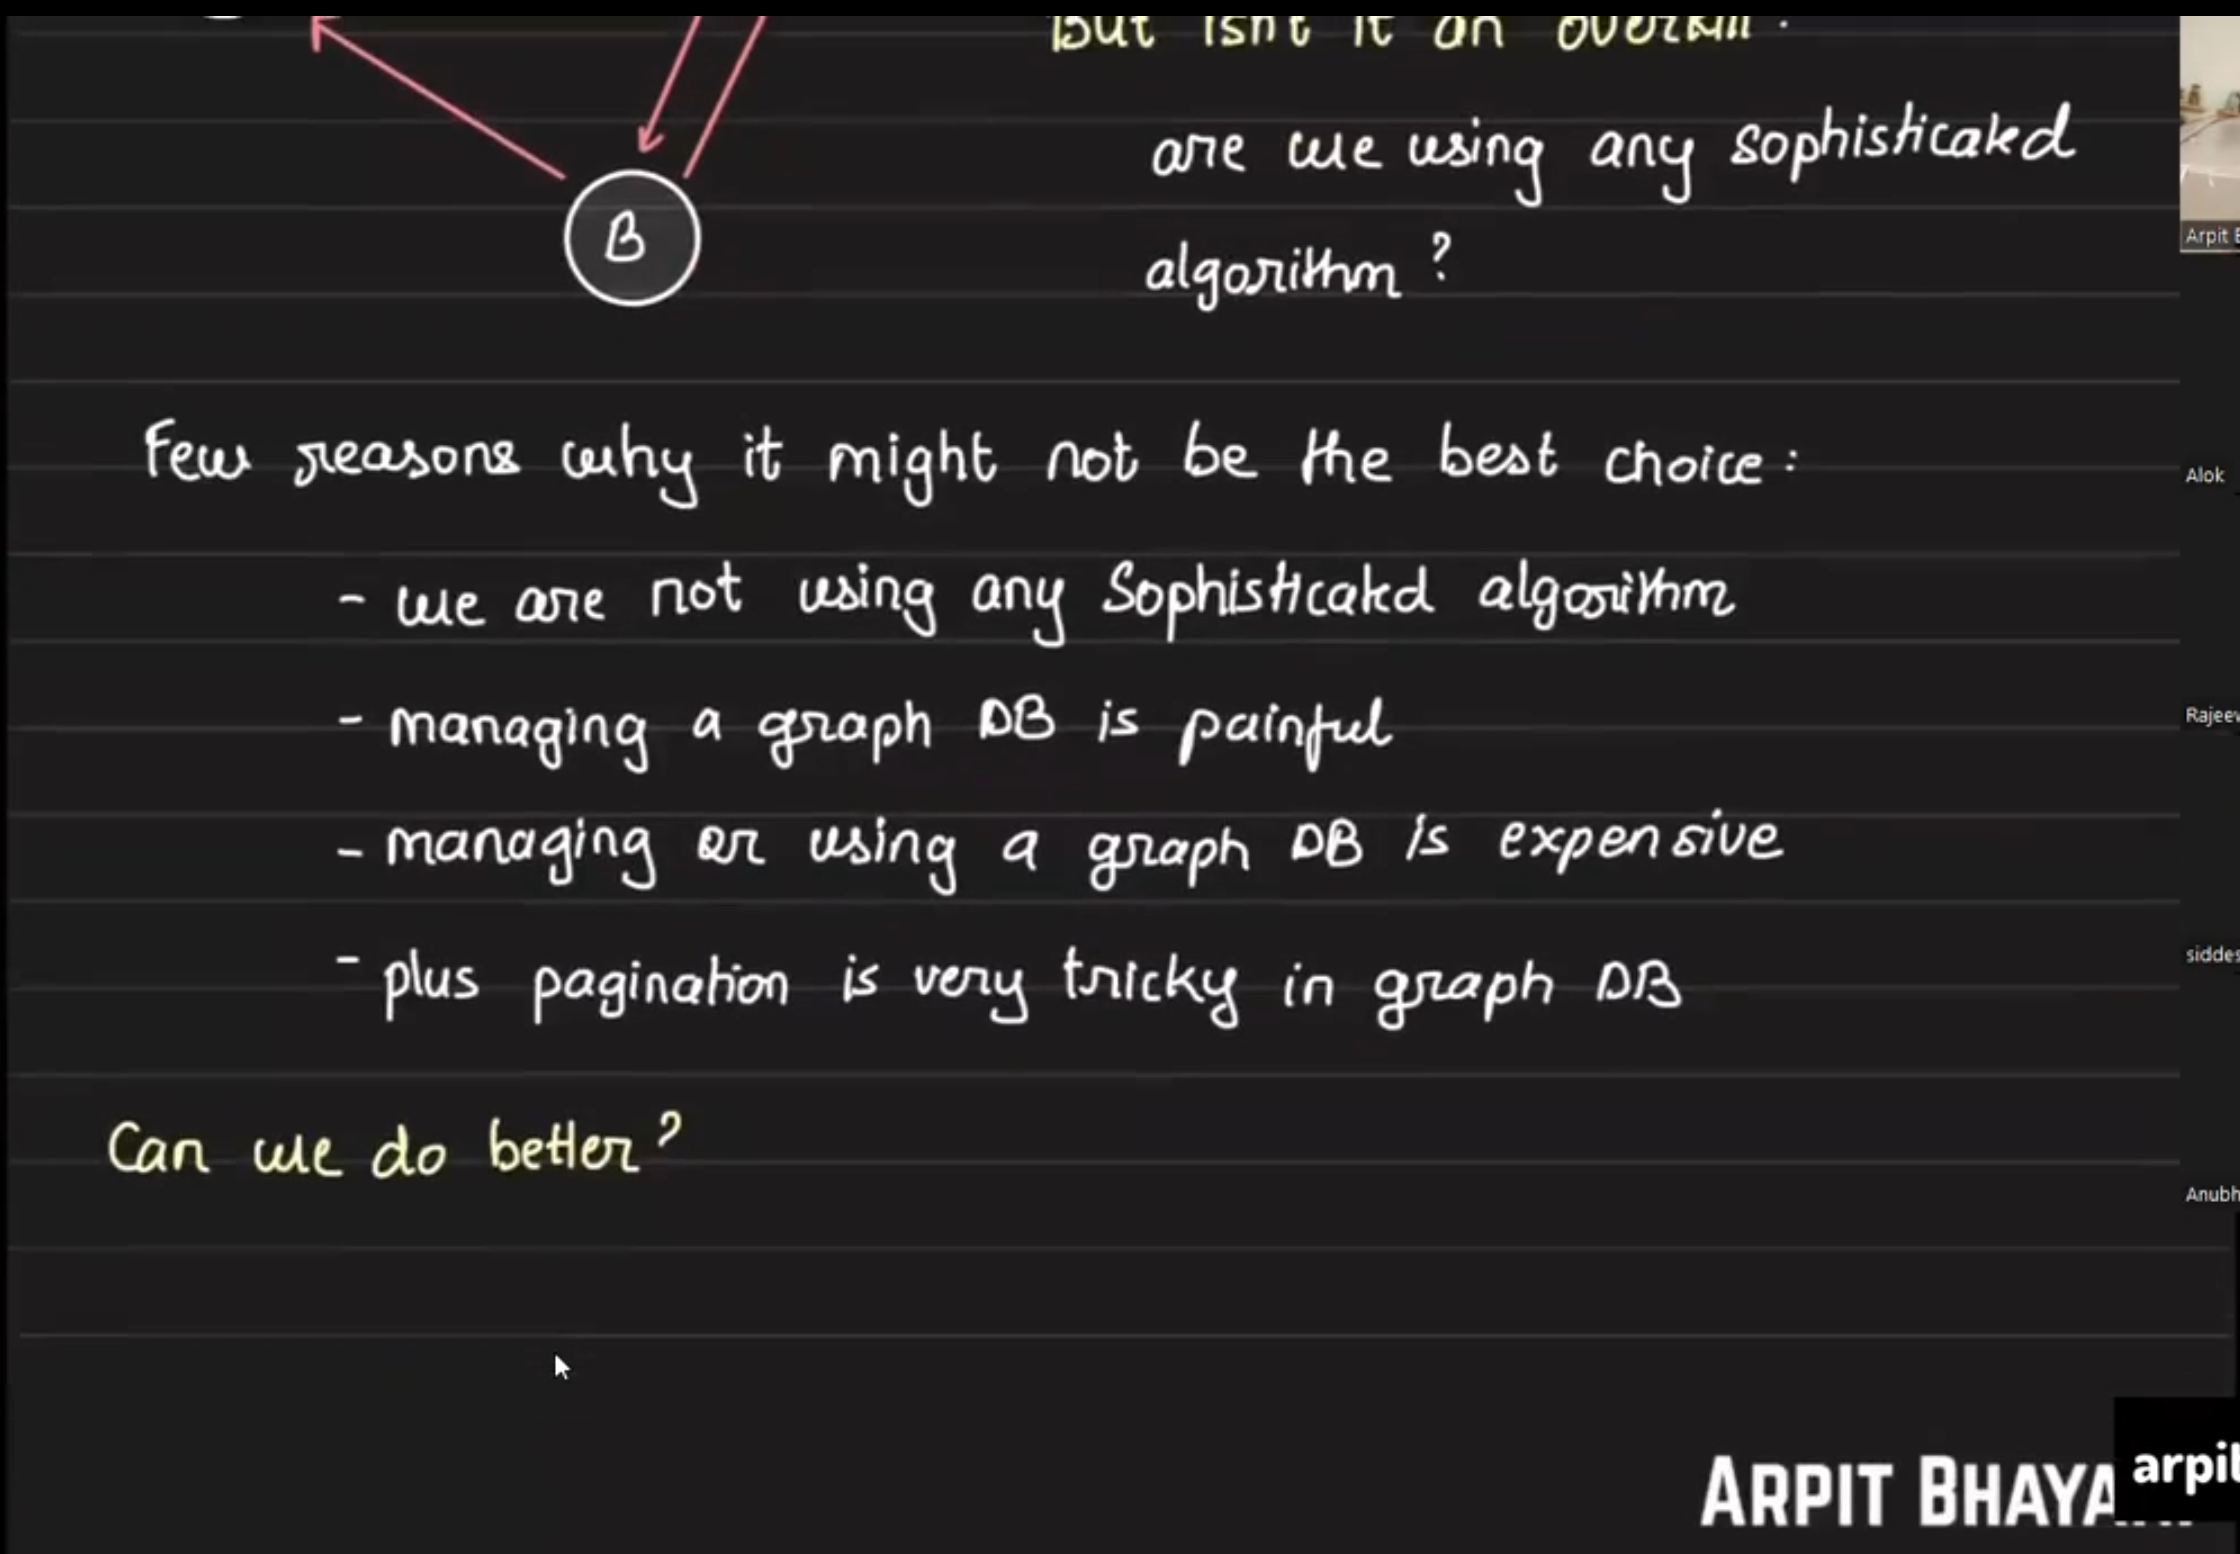 But isn't it an overkill
are we using any sophisticated
algorithm?
B
Few reasons why it might not be the best choice:
- we are not using any Sophisticated algorithm
- managing a graph DB is painful
- managing or using a graph DB is expensive
- plus pagination is very tricky in graph DB
Can we do better?
Arpit
Alok
Rajeev
siddes
Anubh
ARPIT BHAYA
arpit